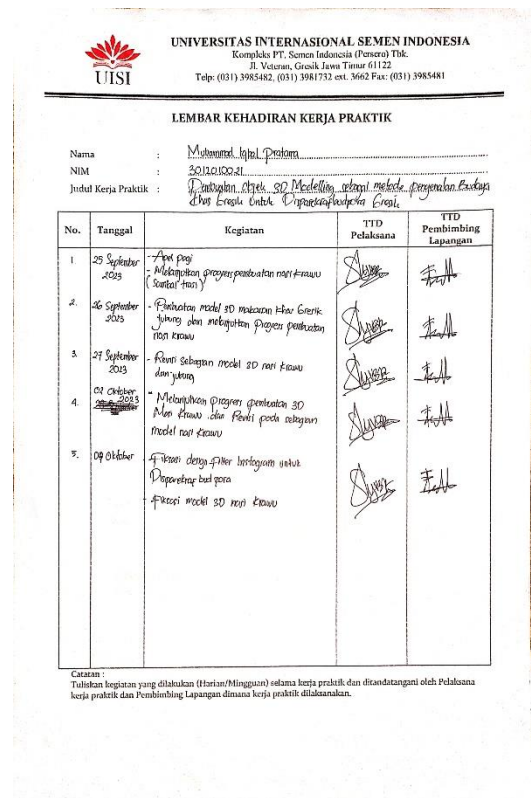 UISI
UNIVERSITAS INTERNASIONAL SEMEN INDONESIA
Kompleks PT. Semen Indonesia (Persero) Tbk.
Jl. Veteran, Gresik Jawa Timur 61122
Telp: (031) 3985482, (031) 3981732 ext. 3662 Fax: (031) 3985481
LEMBAR KEHADIRAN KERJA PRAKTIK
Nama : Muhammad Iqbal Pratama
NIM : 3012010021
Judul Kerja Praktik : Pembuatan Objek 3D Modelling sebagai metode pengenalan Budaya
khas Gresik Untuk Disparekrafbudpora Gresik
No. Tanggal Kegiatan TTD Pelaksana TTD Pembimbing Lapangan
1 25 September 2023 - Apel pagi
- Melanjutkan progres pembuatan nasi krawu
2. 26 September 2023 - Pembuatan model 3D makanan khas Gresik
jubung dan melanjutkan progres pembuatan
nasi krawu
3. 27 September 2023 - Revisi sebagian model 3D nasi krawu
dan jubung
4. 02 Oktober 2023 - Melanjutkan progres pembuatan 3D
krawu dan Revisi pada sebagian
model nasi krawu
5. 09 Oktober - Fiksasi design filter Instagram untuk
Disparekraf budpora
- Fiksasi model 3D nasi krawu
Catatan :
Tuliskan kegiatan yang dilakukan (Harian/Mingguan) selama kerja praktik dan ditandatangani oleh Pelaksana
kerja praktik dan Pembimbing Lapangan dimana kerja praktik dilaksanakan.